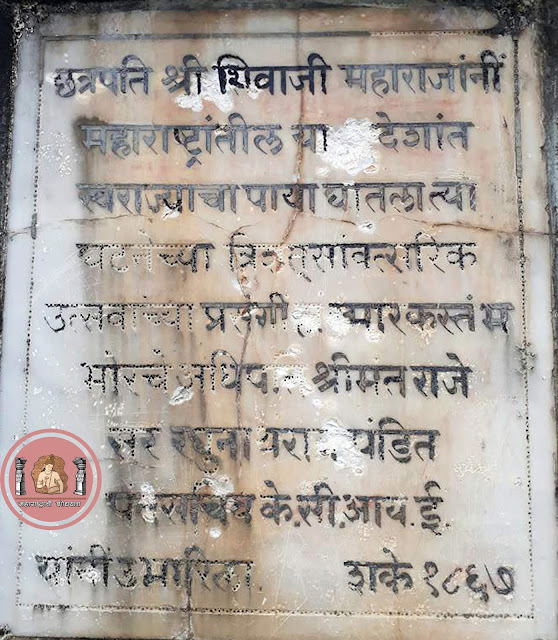 छत्रपति श्री शिवाजी महाराजांनीं
महाराष्ट्रांतील या देशांत
स्वराज्याचा पाया घातला त्या
घटनेच्या त्रिशत्सांवत्सारिक
उत्सवाच्या प्रसंगीं स्मारकस्तंभ
भोरचे अधिपति श्रीमंत राजे
सर रघुनाथराव पंडित
पंतसचिव के.सी.आय.ई.
यांनीं उभारिला. शके १८६७